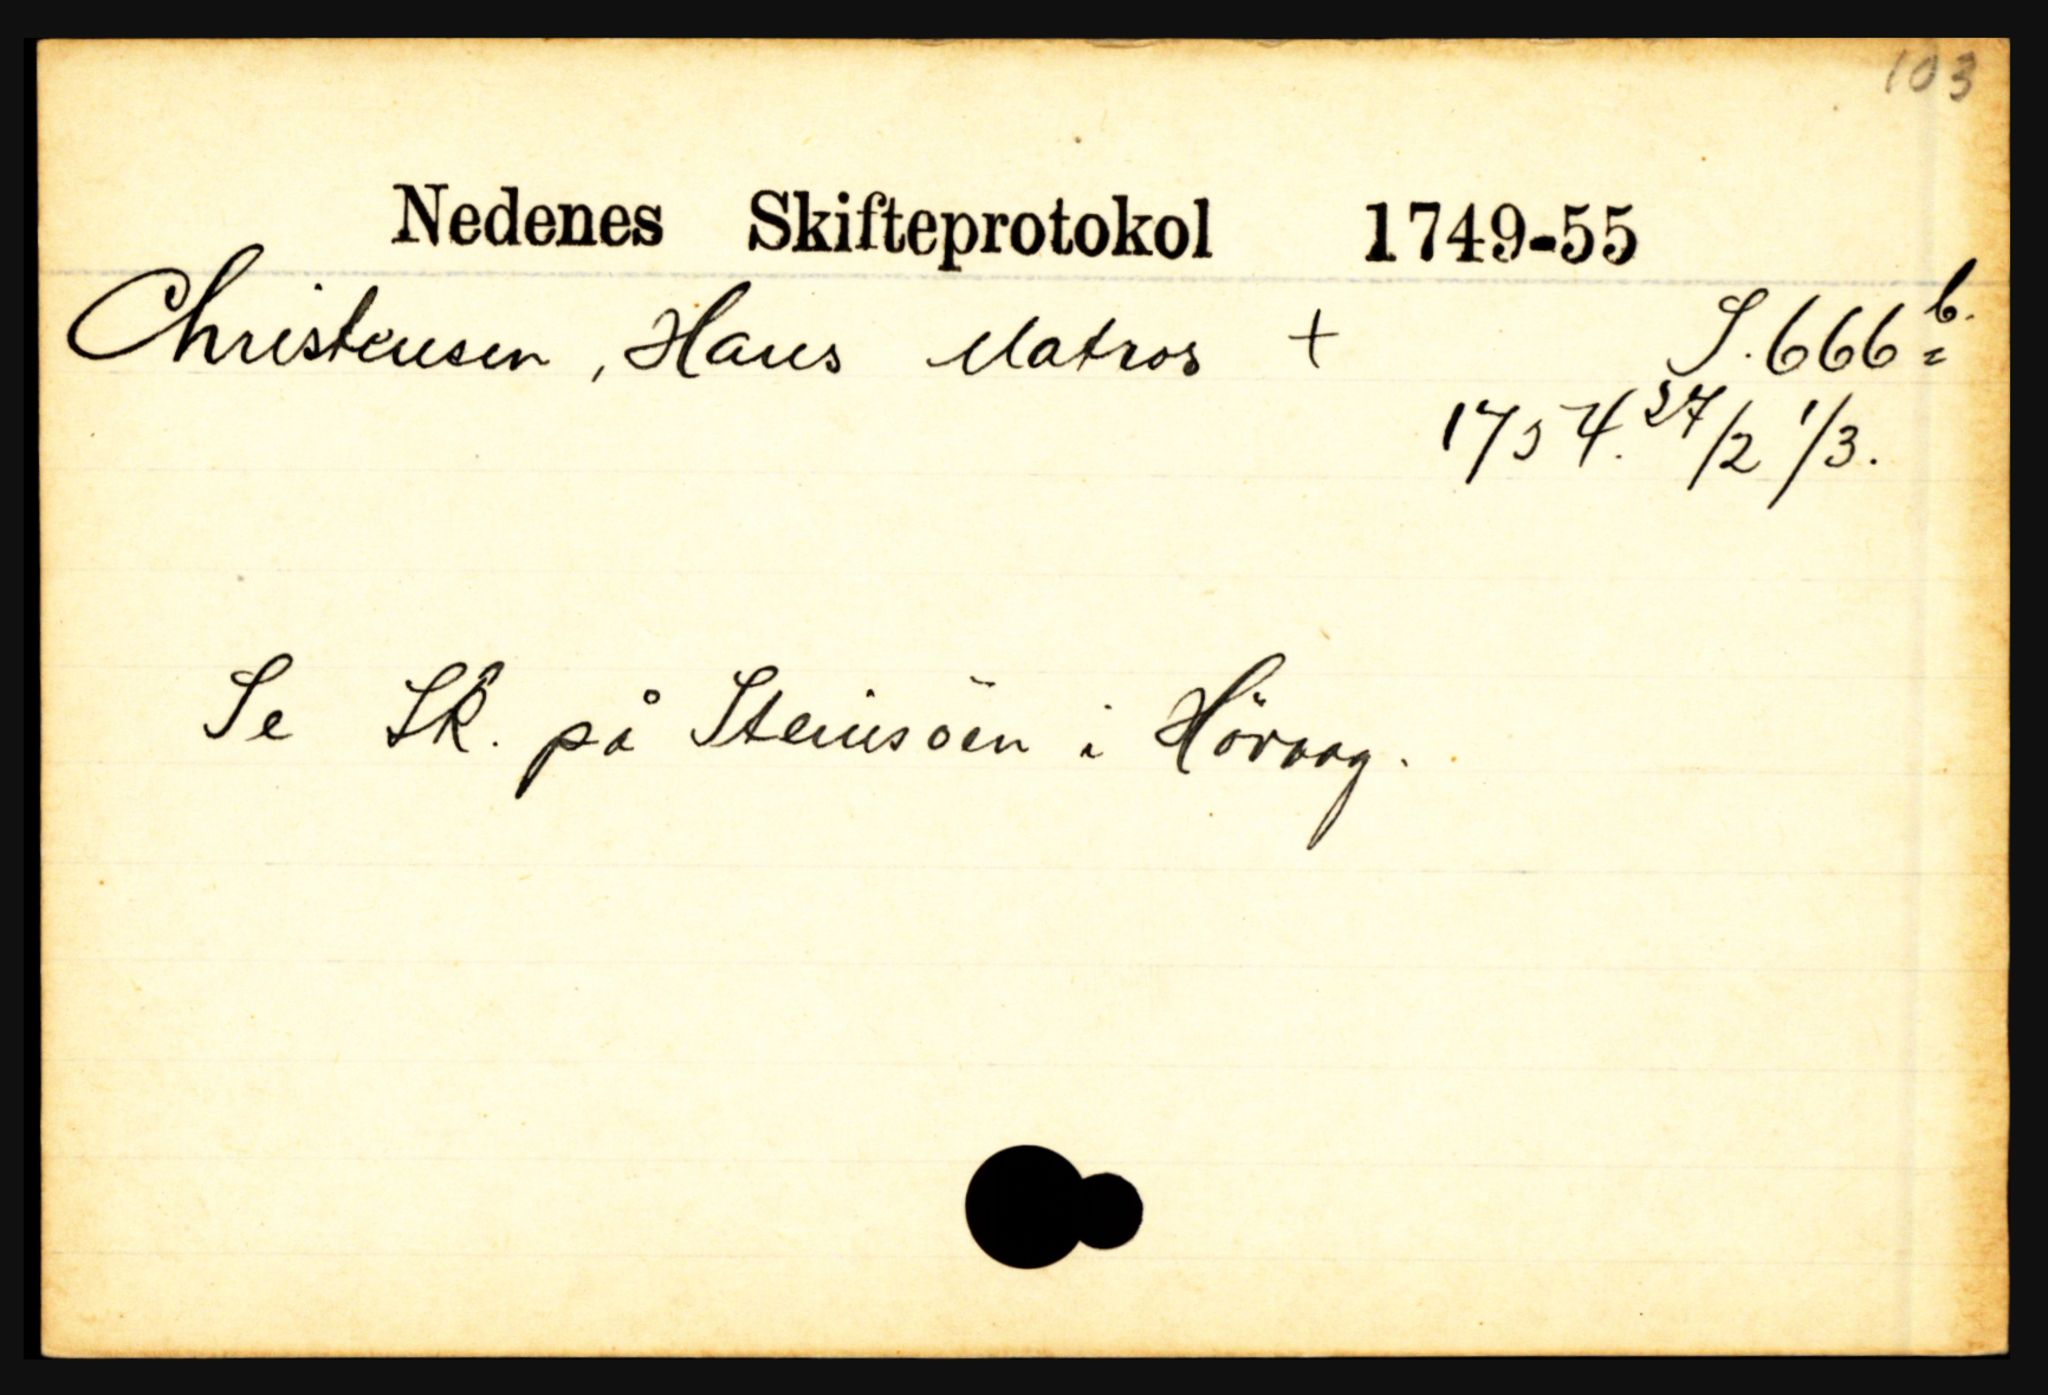 103
Nedenes Skifteprotokol 1749-55
Christensen, Hans Matros + S. 666 b.
1754. 27/2 1/3.
Se Sk. på Steinsöen i Hövaag.